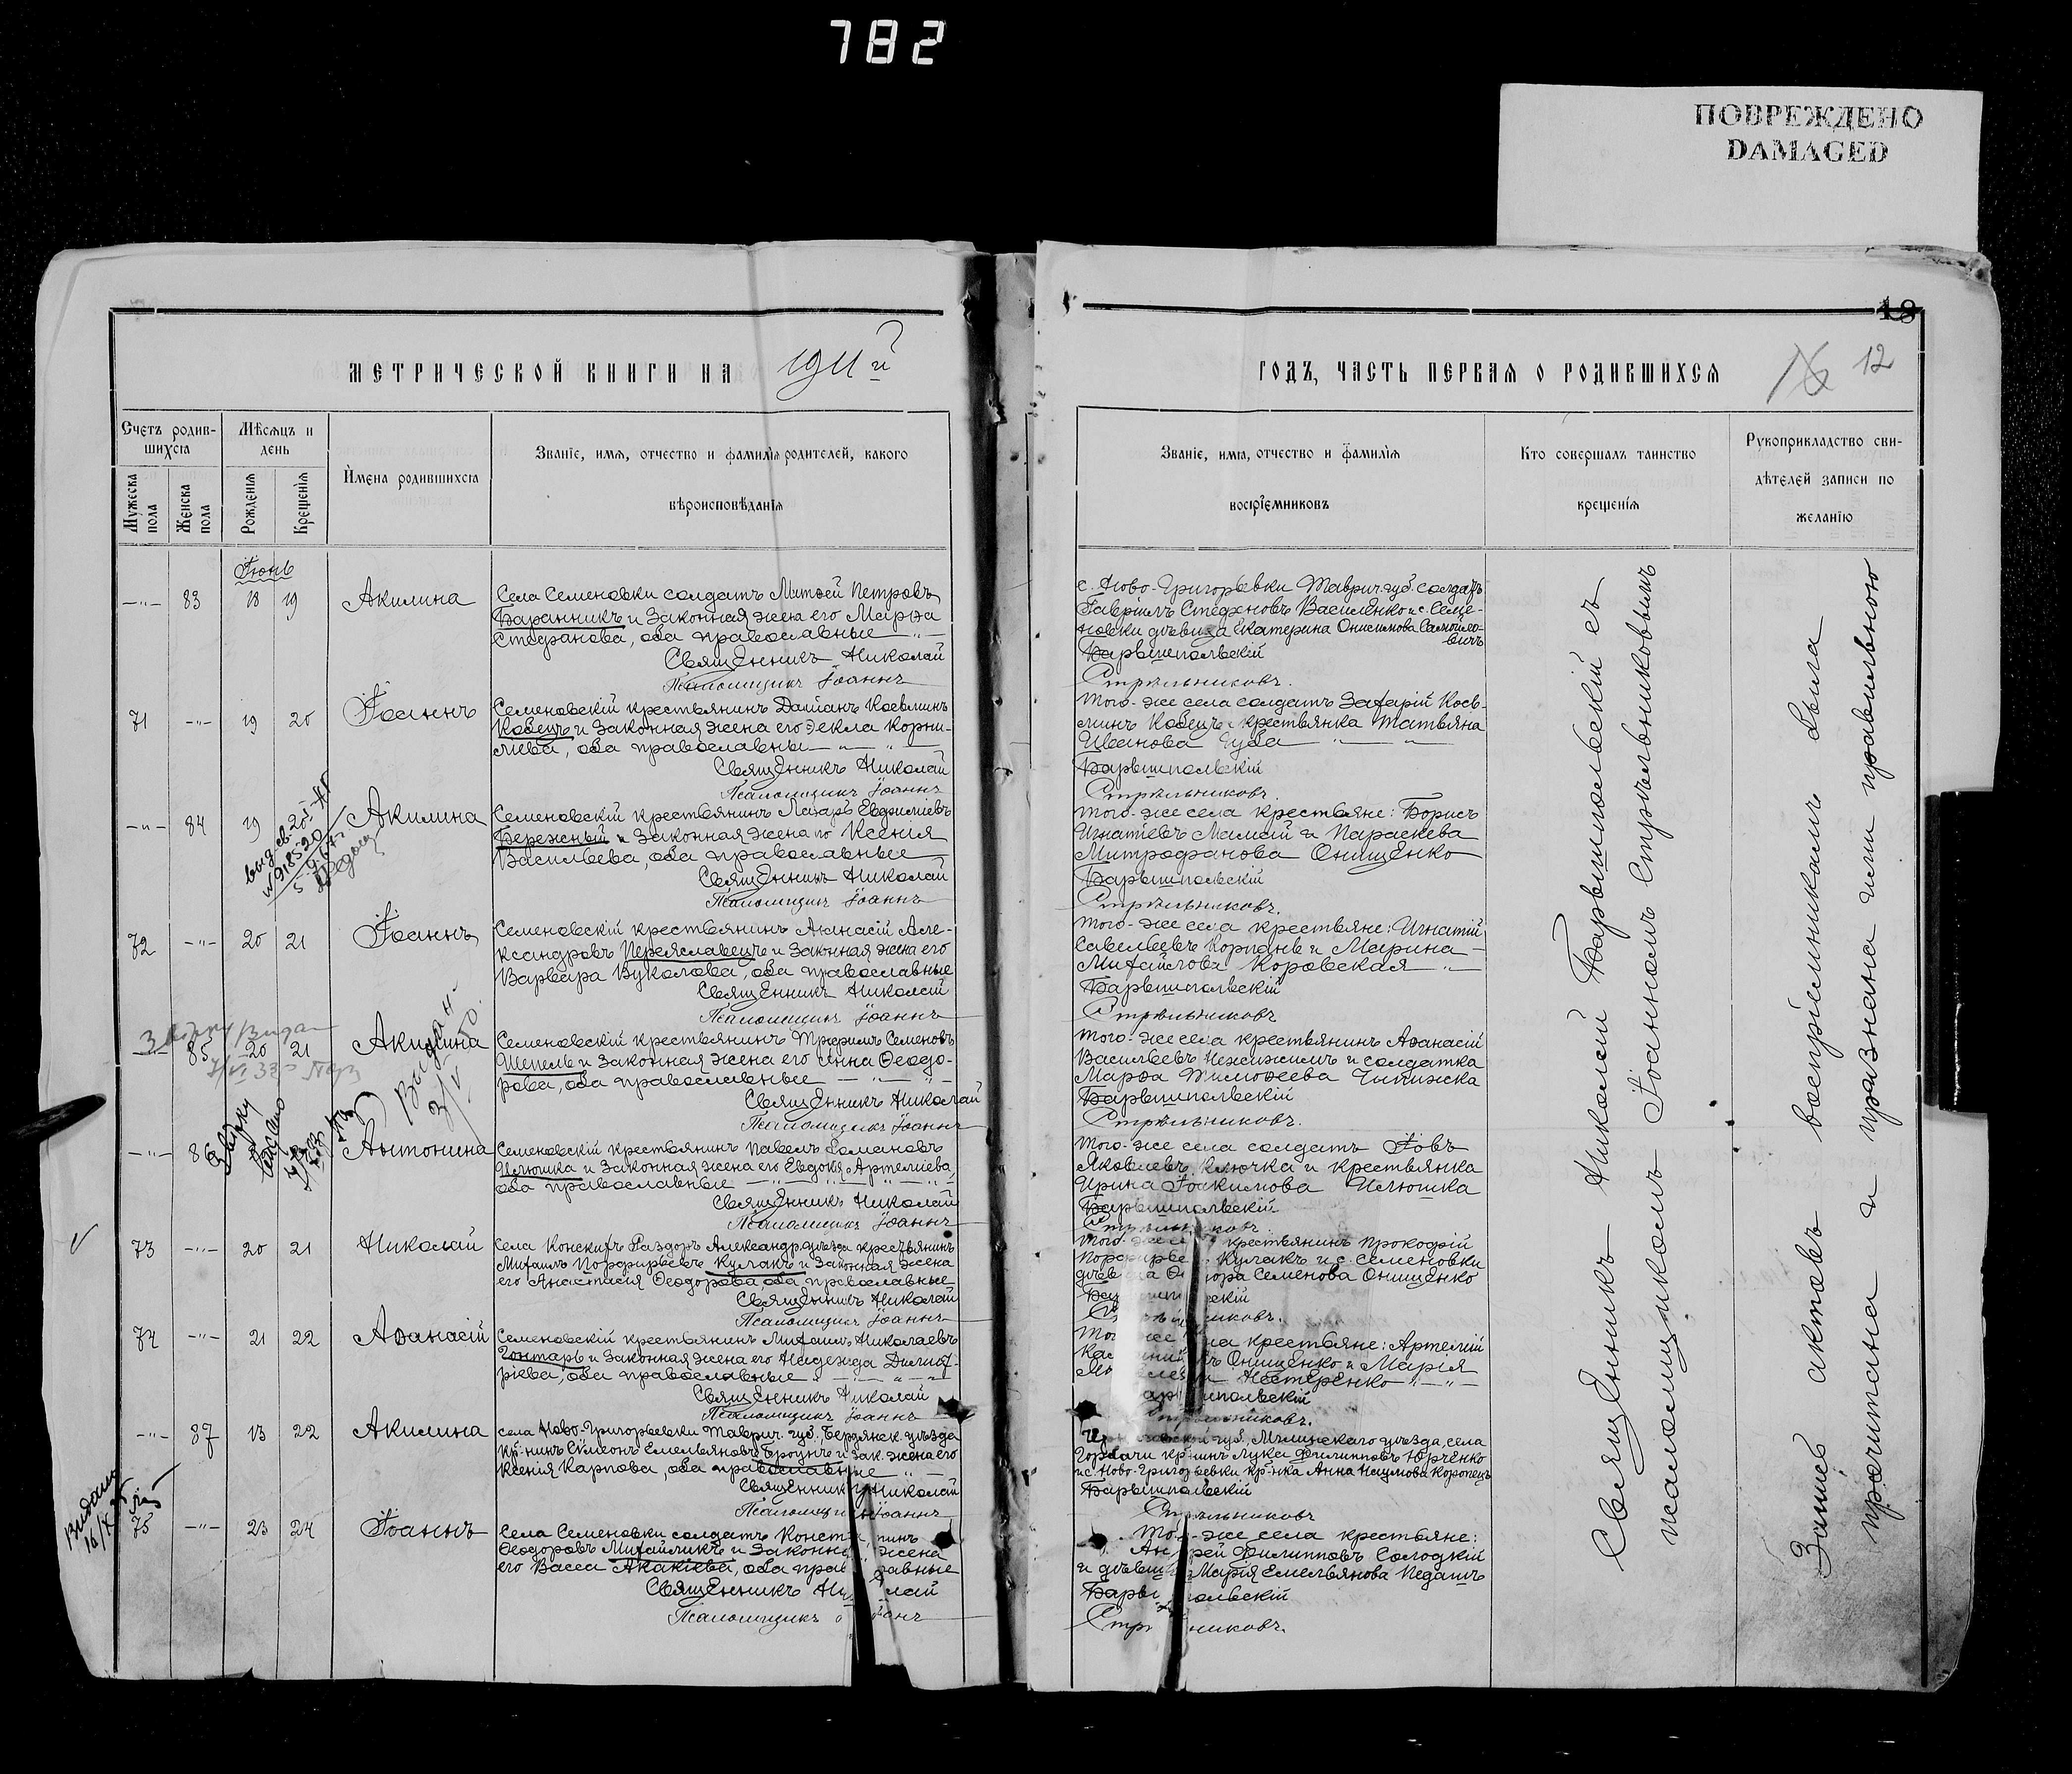 782
ПОВРЕЖДЕНО
DAMAGED
18
16 12
МЕТРИЧЕСКОЙ КНИГИ НА 1911й
ГОДЪ, ЧАСТЬ ПЕРВАЯ О РОДИВШИХСЯ
Счетъ родив-
шихся
Мужеска пола
Женска пола
Мѣсяцъ и день
Рожденія
Крещенія
Имена родившихся
Званіе, имя, отчество и фамилія родителей, какого
вѣроисповѣданія
Званіе, имя, отчество и фамилія
воспріемниковъ
Кто совершалъ таинство
крещенія
Рукоприкладство сви-
дѣтелей записи по
желанію
Іюнь
—"— 83 18 19 Акилина
Села Семеновки солдатъ Митѳей Петровъ
Баранникъ и законная жена его Марѳа
Стефанова, оба православные
Священникъ Николай
Псаломщикъ Іоаннъ
с. Ново-Григорьевки Таврич. губ. солдатъ
Гавріилъ Стефановъ Василенко и с. Семе-
новки дѣвица Екатерина Онисимова Самойло-
вичъ
Барвшпольскій
Стрѣльниковъ.
71 —"— 19 20 Іоаннъ
Семеновскій крестьянинъ Даміанъ Косминъ
Кобецъ и законная жена его Ѳекла Корни-
лиева, оба православны
Священникъ Николай
Псаломщикъ Іоаннъ
того-же села солдатъ Захарій Кось-
минъ Кобецъ и крестьянка Татьяна
Иванова Губа
Барвшпольскій
Стрѣльниковъ.
—"— 84 19 20 Акилина
Семеновскій крестьянинъ Лазарь Евфиміевъ
Бережный и законная жена его Ксенія
Васильева, оба православные
Священникъ Николай
Псаломщикъ Іоаннъ
того-же села крестьяне: Борисъ
Игнатіевъ Мамай и Параскева
Митрофанова Онищенко
Барвшпольскій
Стрѣльниковъ.
72 —"— 20 21 Іоаннъ
Семеновскій крестьянинъ Аѳанасій Але-
ксандровъ Переяславецъ и законная жена его
Варвара Вуколова, оба православные
Священникъ Николай
Псаломщикъ Іоаннъ
того-же села крестьяне: Игнатій
Савельевъ Корпань и Марина
Михайлова Коровская
Барвшпольскій
Стрѣльниковъ
—"— 85 20 21 Акилина
Семеновскій крестьянинъ Трифилъ Семеновъ
Шепель и законная жена его Анна Ѳеодо-
рова, оба православные
Священникъ Николай
Псаломщикъ Іоаннъ
того-же села крестьянинъ Аѳанасій
Васильевъ и солдатка
Марѳа Тимоѳеева Чипижска
Барвшпольскій
Стрѣльниковъ.
Выдан
—"— 86 Антонина
Семеновскій крестьянинъ Павелъ Романовъ
Илюшка и законная жена его Евдокія Артеміева,
оба православные
Священникъ Николай
Псаломщикъ Іоаннъ
того-же села солдатъ Іовъ
Яковлевъ Ключка и крестьянка
Ирина Іоакимова Илюшка
Барвшпольскій
73 —"— 20 21 Николай
Села Конскихъ Раздоръ Александр. уѣзда крестьянинъ
Михаилъ Порфирьевъ Кулакъ и законная жена
его Анастасія Ѳеодорова оба православные
Священникъ Николай
Псаломщикъ Іоаннъ
крестьянинъ Прокофій
Кулакъ и с. Семеновки
Семенова Онищенко
74 —"— 21 22 Аѳанасій
Семеновскій крестьянинъ Михаилъ Николаевъ
Гонтарь и законная жена его Надежда Димит-
ріева, оба православные
Священникъ Николай
Псаломщикъ Іоаннъ
крестьяне: Артемій
Онищенко и Марія
Нестеренко
—"— 87 13 22 Акилина
села Ново-Григорьевки Таврич. губ., Бердянск. уѣзда
кр-нинъ Сѵмеонъ Емельяновъ Броунъ и зак. жена его
Ксенія Карпова, оба православные
Священникъ Николай
Псаломщикъ Іоаннъ
губ., Мглинскаго уѣзда, села
Горчачи кр-нинъ Лука Филипповъ Юрченко
и с. Ново-Григорьевки кр-нка Анна Наумова Коропецъ
Барвшпольскій
Стрѣльниковъ
75 —"— 23 24 Іоаннъ
Села Семеновки солдатъ Конст пинъ
Ѳеодоровъ Михайликъ и законна жена
его Васса Акакіева, оба прав славные
Священникъ Николай
Псаломщикъ Іоаннъ
Того-же села крестьяне:
Андрей Филипповъ Солодкій
и дѣвица Марія Емельянова Педашъ
Священникъ Николай Барвшпольскій съ
псаломщикомъ Іоанномъ Стрѣльниковымъ
Запись актовъ воспріемникамъ была
прочитана и признана ими правильною